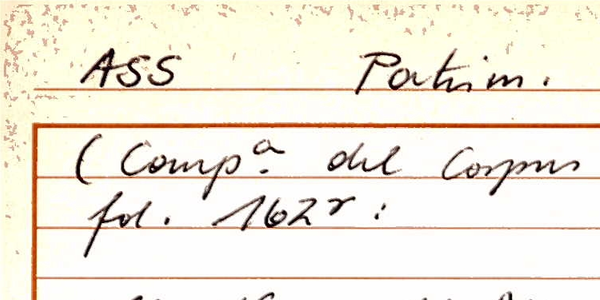 ASS Patrim.
( Compª. del Corpus
fol. 162r :